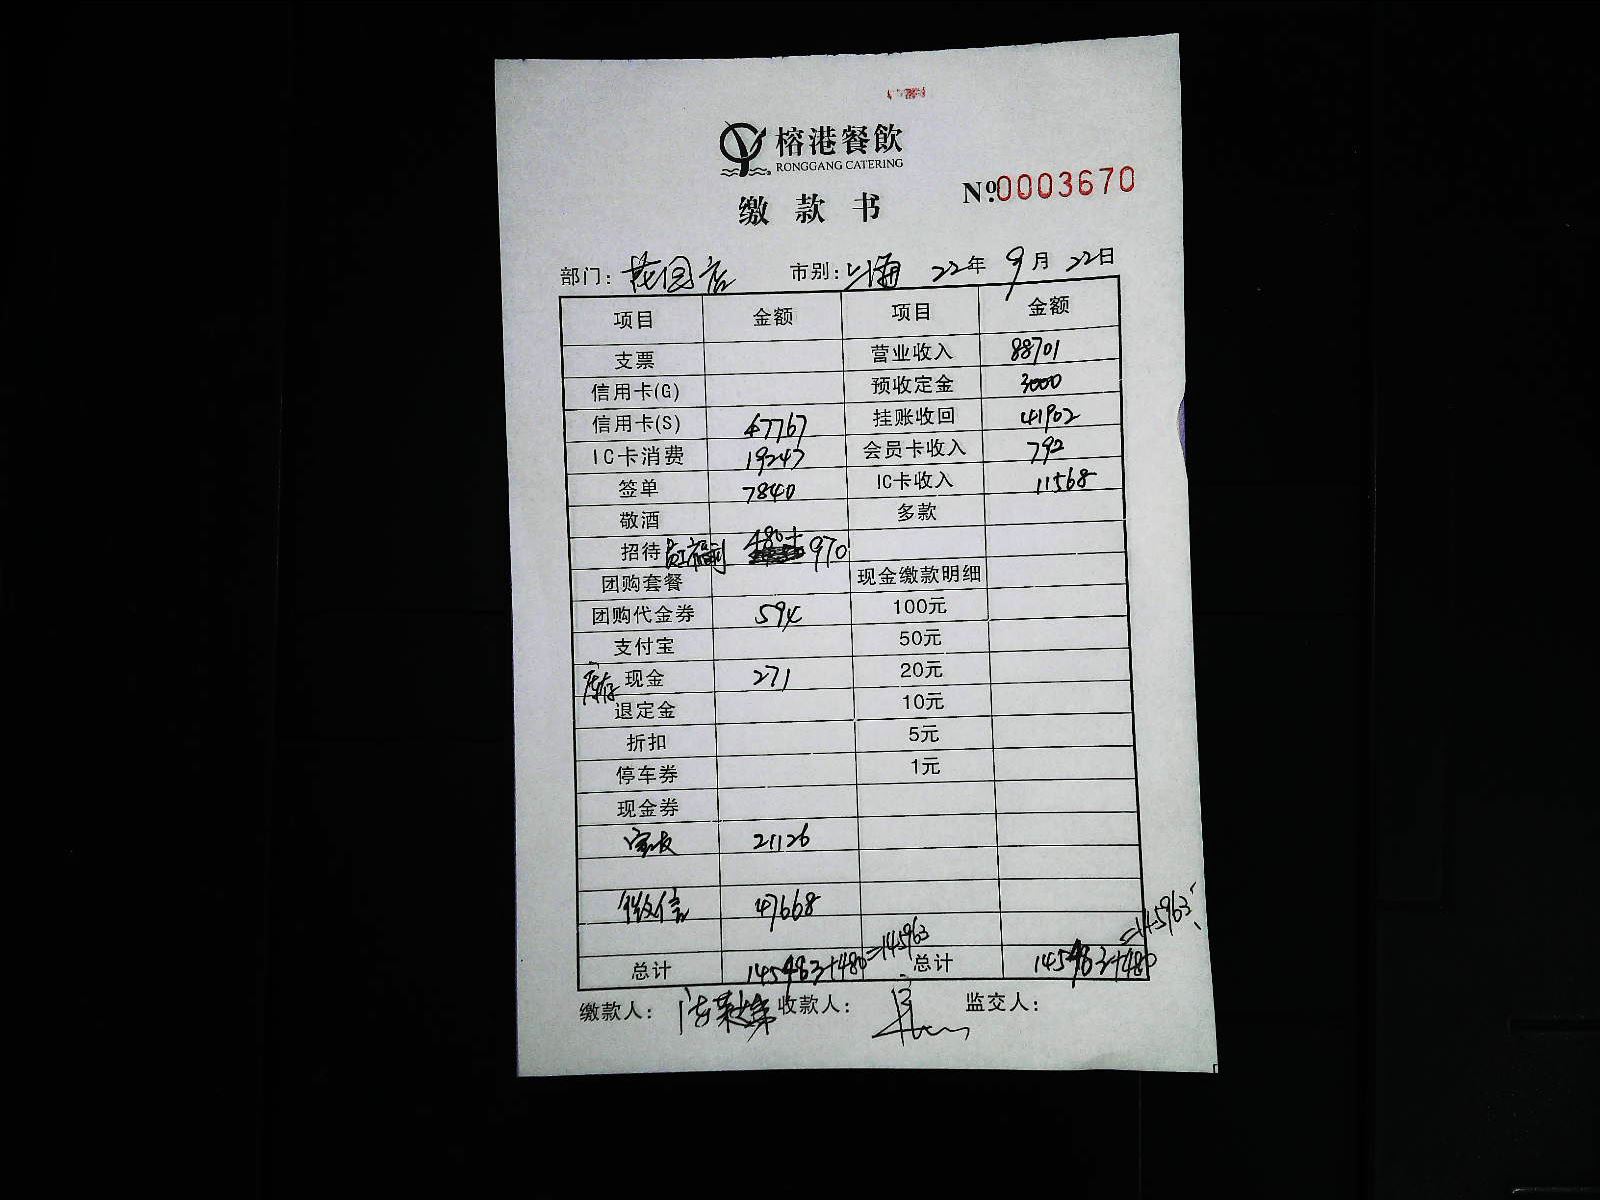 榕港餐飲
RONGGANG CATERING
缴款书
No.0003670
部门: 花园店 市别: 上海 22年 9月 22日
项目 金额 项目 金额
支票 营业收入 88701
信用卡(G) 预收定金 3000
信用卡(S) 47767 挂账收回 41902
IC卡消费 19247 会员卡收入 792
签单 7840 IC卡收入 11568
敬酒 多款
招待 员工福利 480+ 970
团购套餐 现金缴款明细
团购代金券 594 100元
支付宝 50元
库存 现金 271 20元
退定金 10元
折扣 5元
停车券 1元
现金券
21126
微信 47668
总计 145483+480=145963 总计 145483+480=145963
缴款人: 收款人: 监交人: